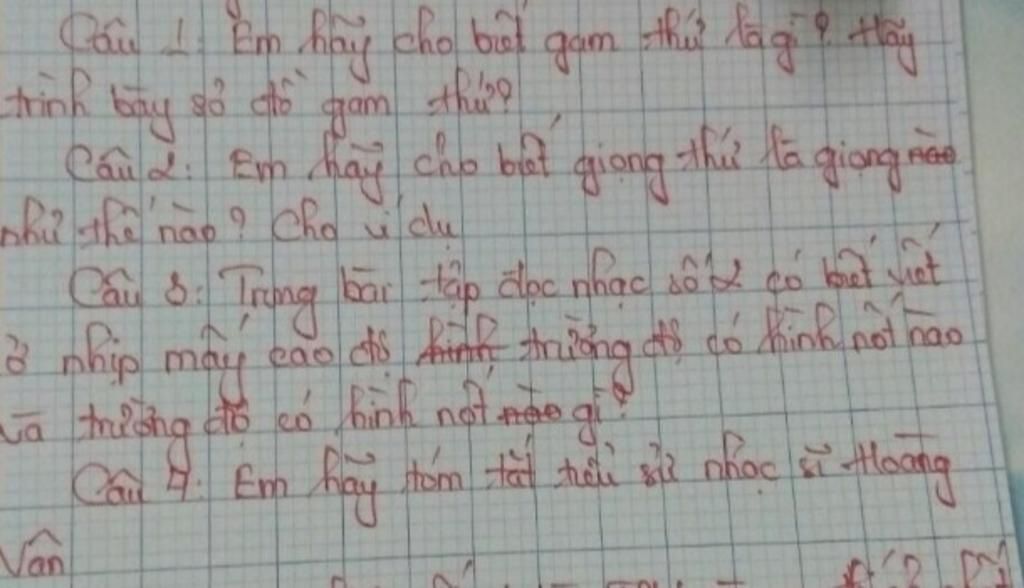 Câu 1: Em hãy cho biết gam thứ là gì? Hãy
trình bày sơ đồ gam thứ?
Câu 2: Em hãy cho biết giọng thứ là giọng nào
như thế nào? Cho ví dụ
Câu 3: Trong bài tập đọc nhạc số 2 có biết viết
ở nhịp mấy cao độ hình trường độ có hình nốt nào
và trường độ có hình nốt nào gì?
Câu 4: Em hãy tóm tắt tiểu sử nhạc sĩ Hoàng
Vân